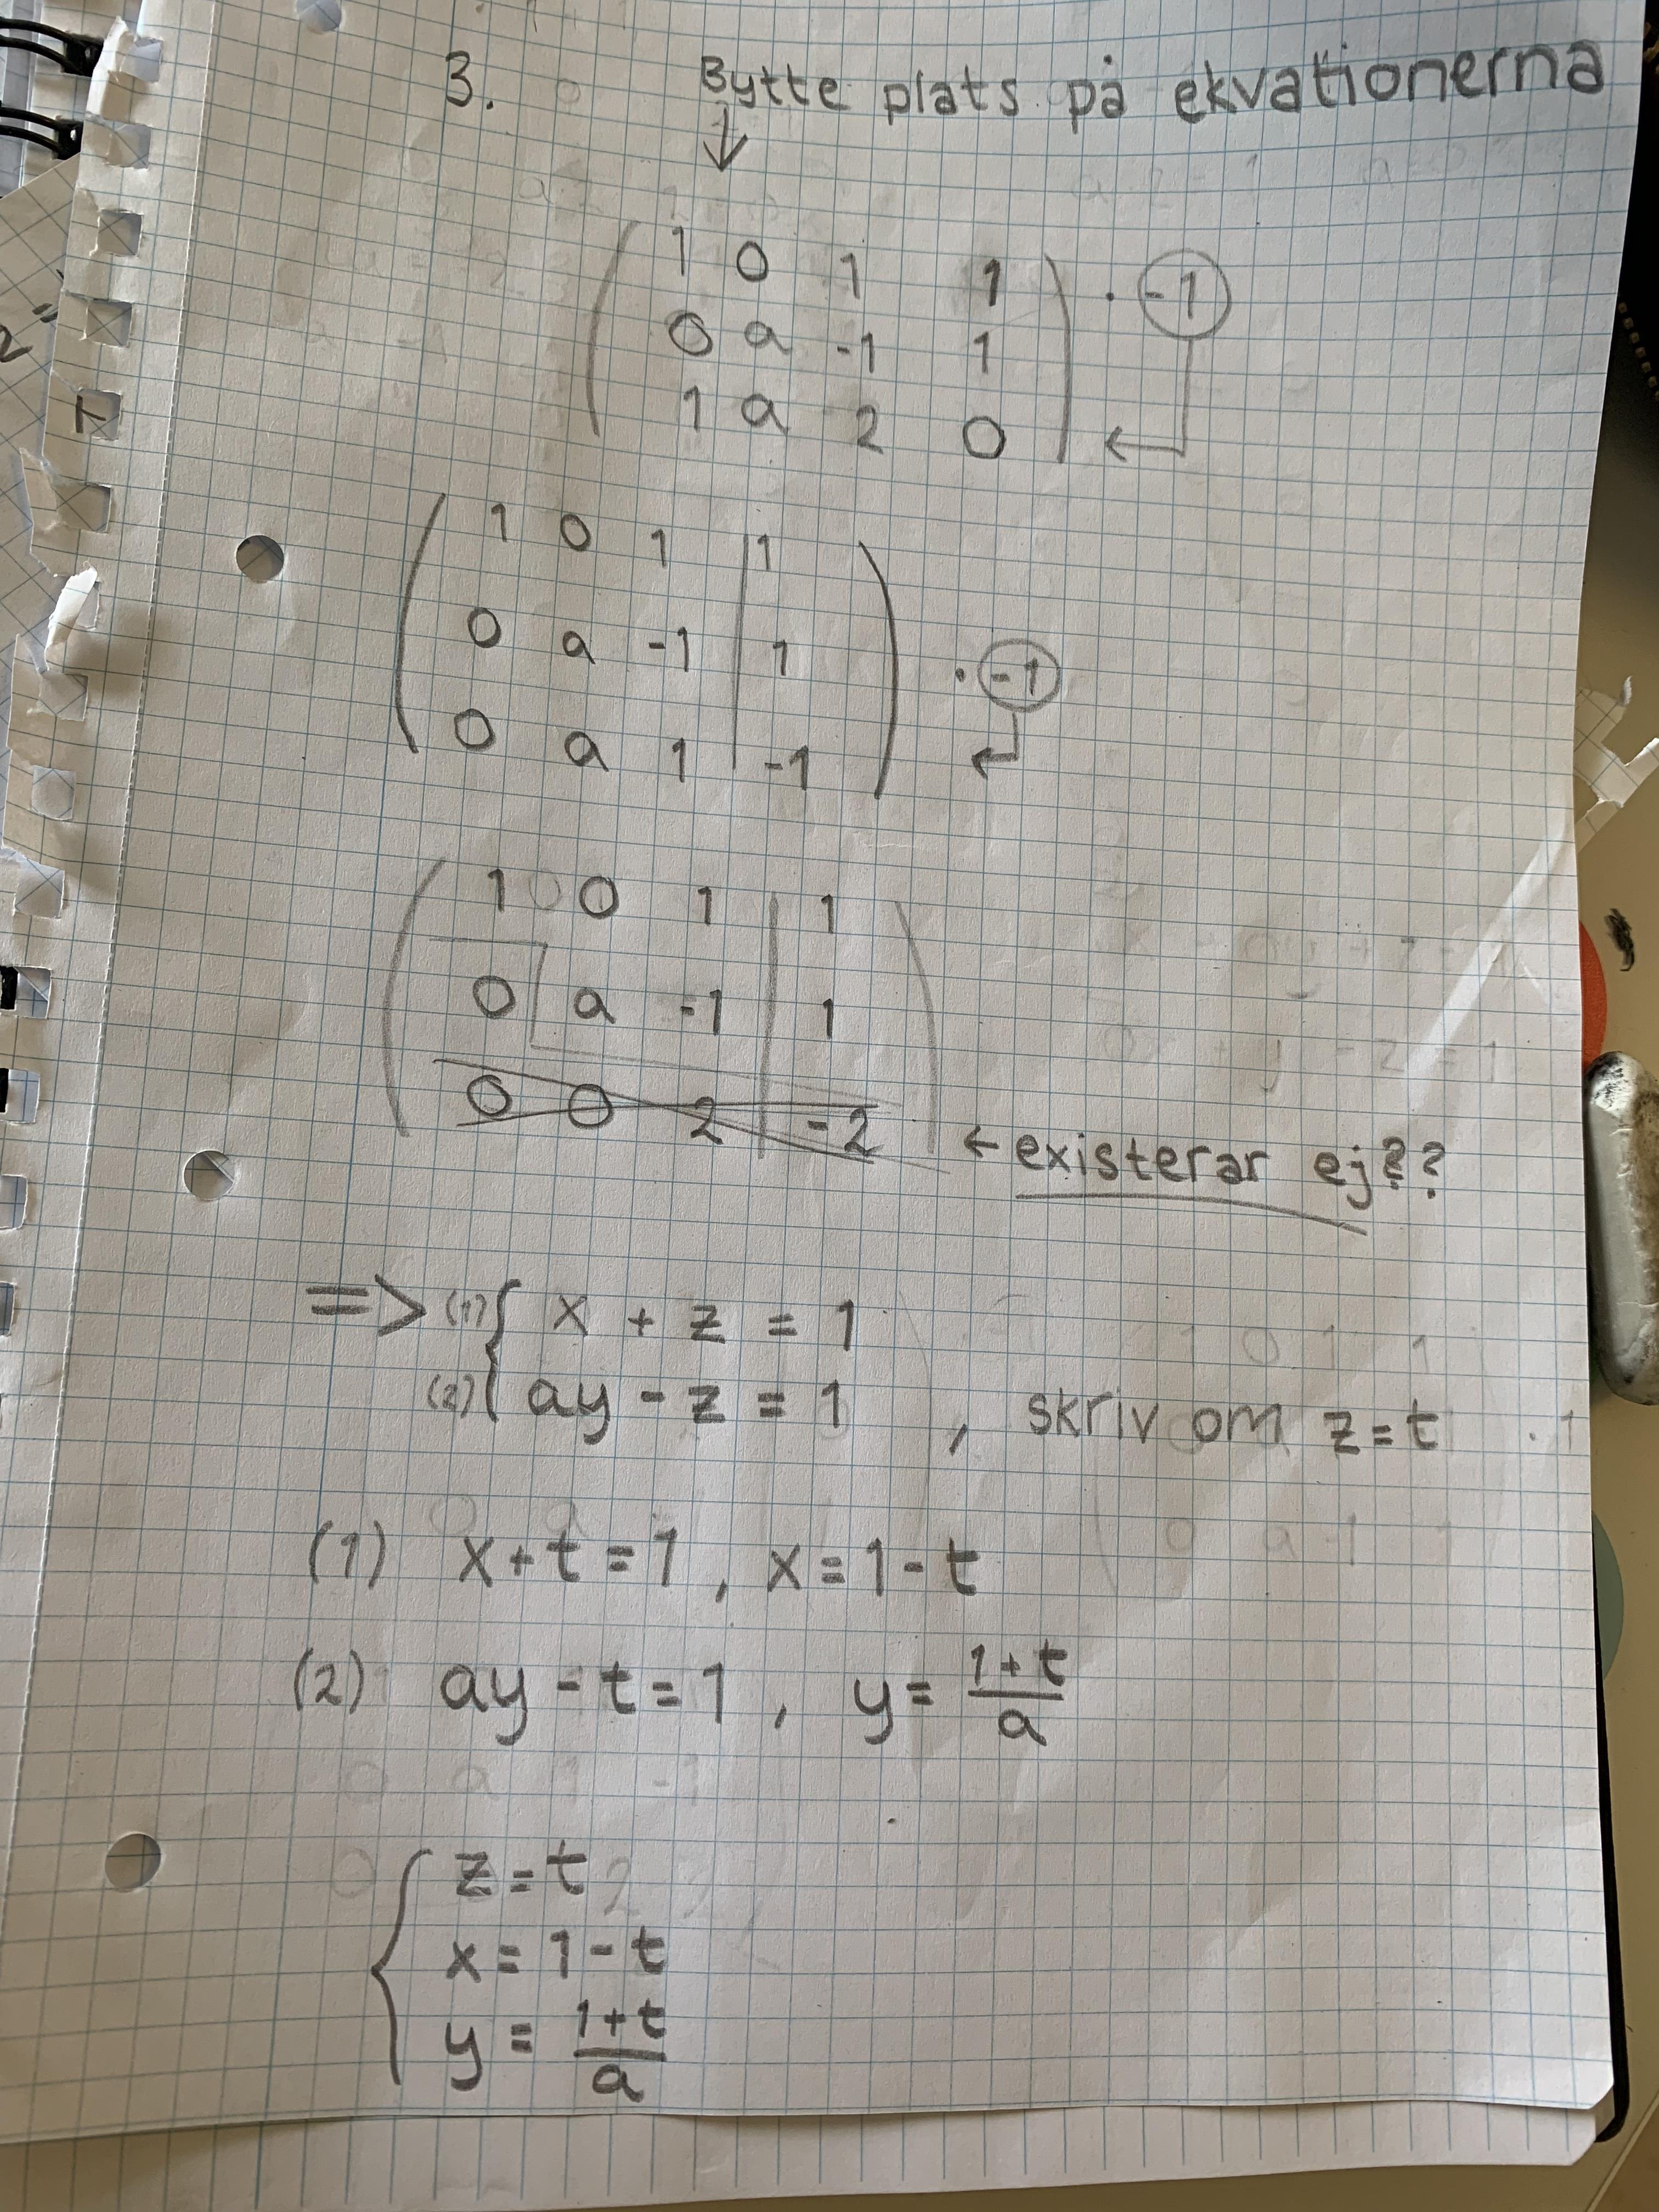 3. Bytte plats på ekvationerna
↓
( 1 0 1 1 ) · -1
( 0 a -1 1 )
( 1 a 2 0 ) ←
( 1 0 1 | 1 )
( 0 a -1 | 1 ) · -1
( 0 a 1 | -1 ) ←
( 1 0 1 | 1 )
( 0 a -1 | 1 )
( 0 0 2 | -2 ) ← existerar ej??
=> (1) { x + z = 1
(2) { ay - z = 1 , skriv om z = t
(1) x + t = 1 , x = 1 - t
(2) ay - t = 1 , y = (1+t)/a
{ z = t
x = 1 - t
y = (1+t)/a